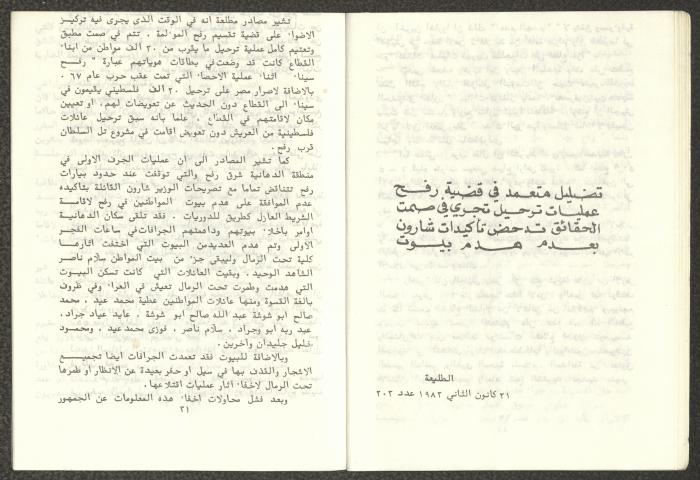 تضليل متعمد في قضية رفح
عمليات ترحيل تجري في صمت
الحقائق تدحض تأكيدات شارون
بعدم هدم بيوت
الطليعة
٢١ كانون الثاني ١٩٨٢ عدد ٢٠٢
تشير مصادر مطلعة انه في الوقت الذي يجرى فيه تركيز
الاضواء على قضية تقسيم رفح المؤلمة ، تتم في صمت مطبق
وتعتيم كامل عملية ترحيل ما يقرب من ٢٠ الف مواطن من ابناء
القطاع كانت قد وضعت في بطاقات هوياتهم عبارة " رفح
سيناء " اثناء عملية الاحصاء التي تمت عقب حرب عام ٦٧ .
بالاضافة لاصرار مصر على ترحيل ٢٠ الف فلسطيني يقيمون في
سيناء الى القطاع دون الحديث عن تعويضات لهم، او تعيين
مكان لاقامتهم في القطاع ، علما بانه سبق ترحيل عائلات
فلسطينية من العريش دون تعويض اقامت في مشروع تل السلطان
قرب رفح .
كما تشير المصادر الى ان عمليات الجرف الاولى في
منطقة الدهانية شرق رفح والتي توقفت عند حدود بيارات
رفح تتناقض تماما مع تصريحات الوزير شارون القائلة بتاكيده
عدم الموافقة على هدم بيوت المواطنين في رفح لاقامة
الشريط العازل كطريق للدوريات . فقد تلقى سكان الدهانية
اوامر باخلاء بيوتهم وداهمتهم الجرافات في ساعات الفجر
الاولى وتم هدم العديد من البيوت التي اختفت اثارها
كلية تحت الرمال وليبقى جزء من بيت المواطن سلام ناصر
الشاهد الوحيد . وبقيت العائلات التي كانت تسكن البيوت
التي هدمت وطمرت تحت الرمال تعيش في العراء وفي ظروف
بالغة القسوة ومنها عائلات المواطنين عطية محمد عيد ، محمد
صالح ابو شوشة عبد الله صالح ابو شوشة ، عايد عياد جراد ،
عبد ربه ابو وجراد ، سلام ناصر ، فوزى محمد عيد ، ومحمود
خليل جليدان وآخرين .
وبالاضافة للبيوت فقد تعمدت الجرافات ايضا تجميع
الاشجار والقذف بها في سيل او حفر بعيدة عن الانظار او طمرها
تحت الرمال لاخفاء آثار عمليات اقتلاعها .
وبعد فشل محاولات اخفاء هذه المعلومات عن الجمهور
٣١